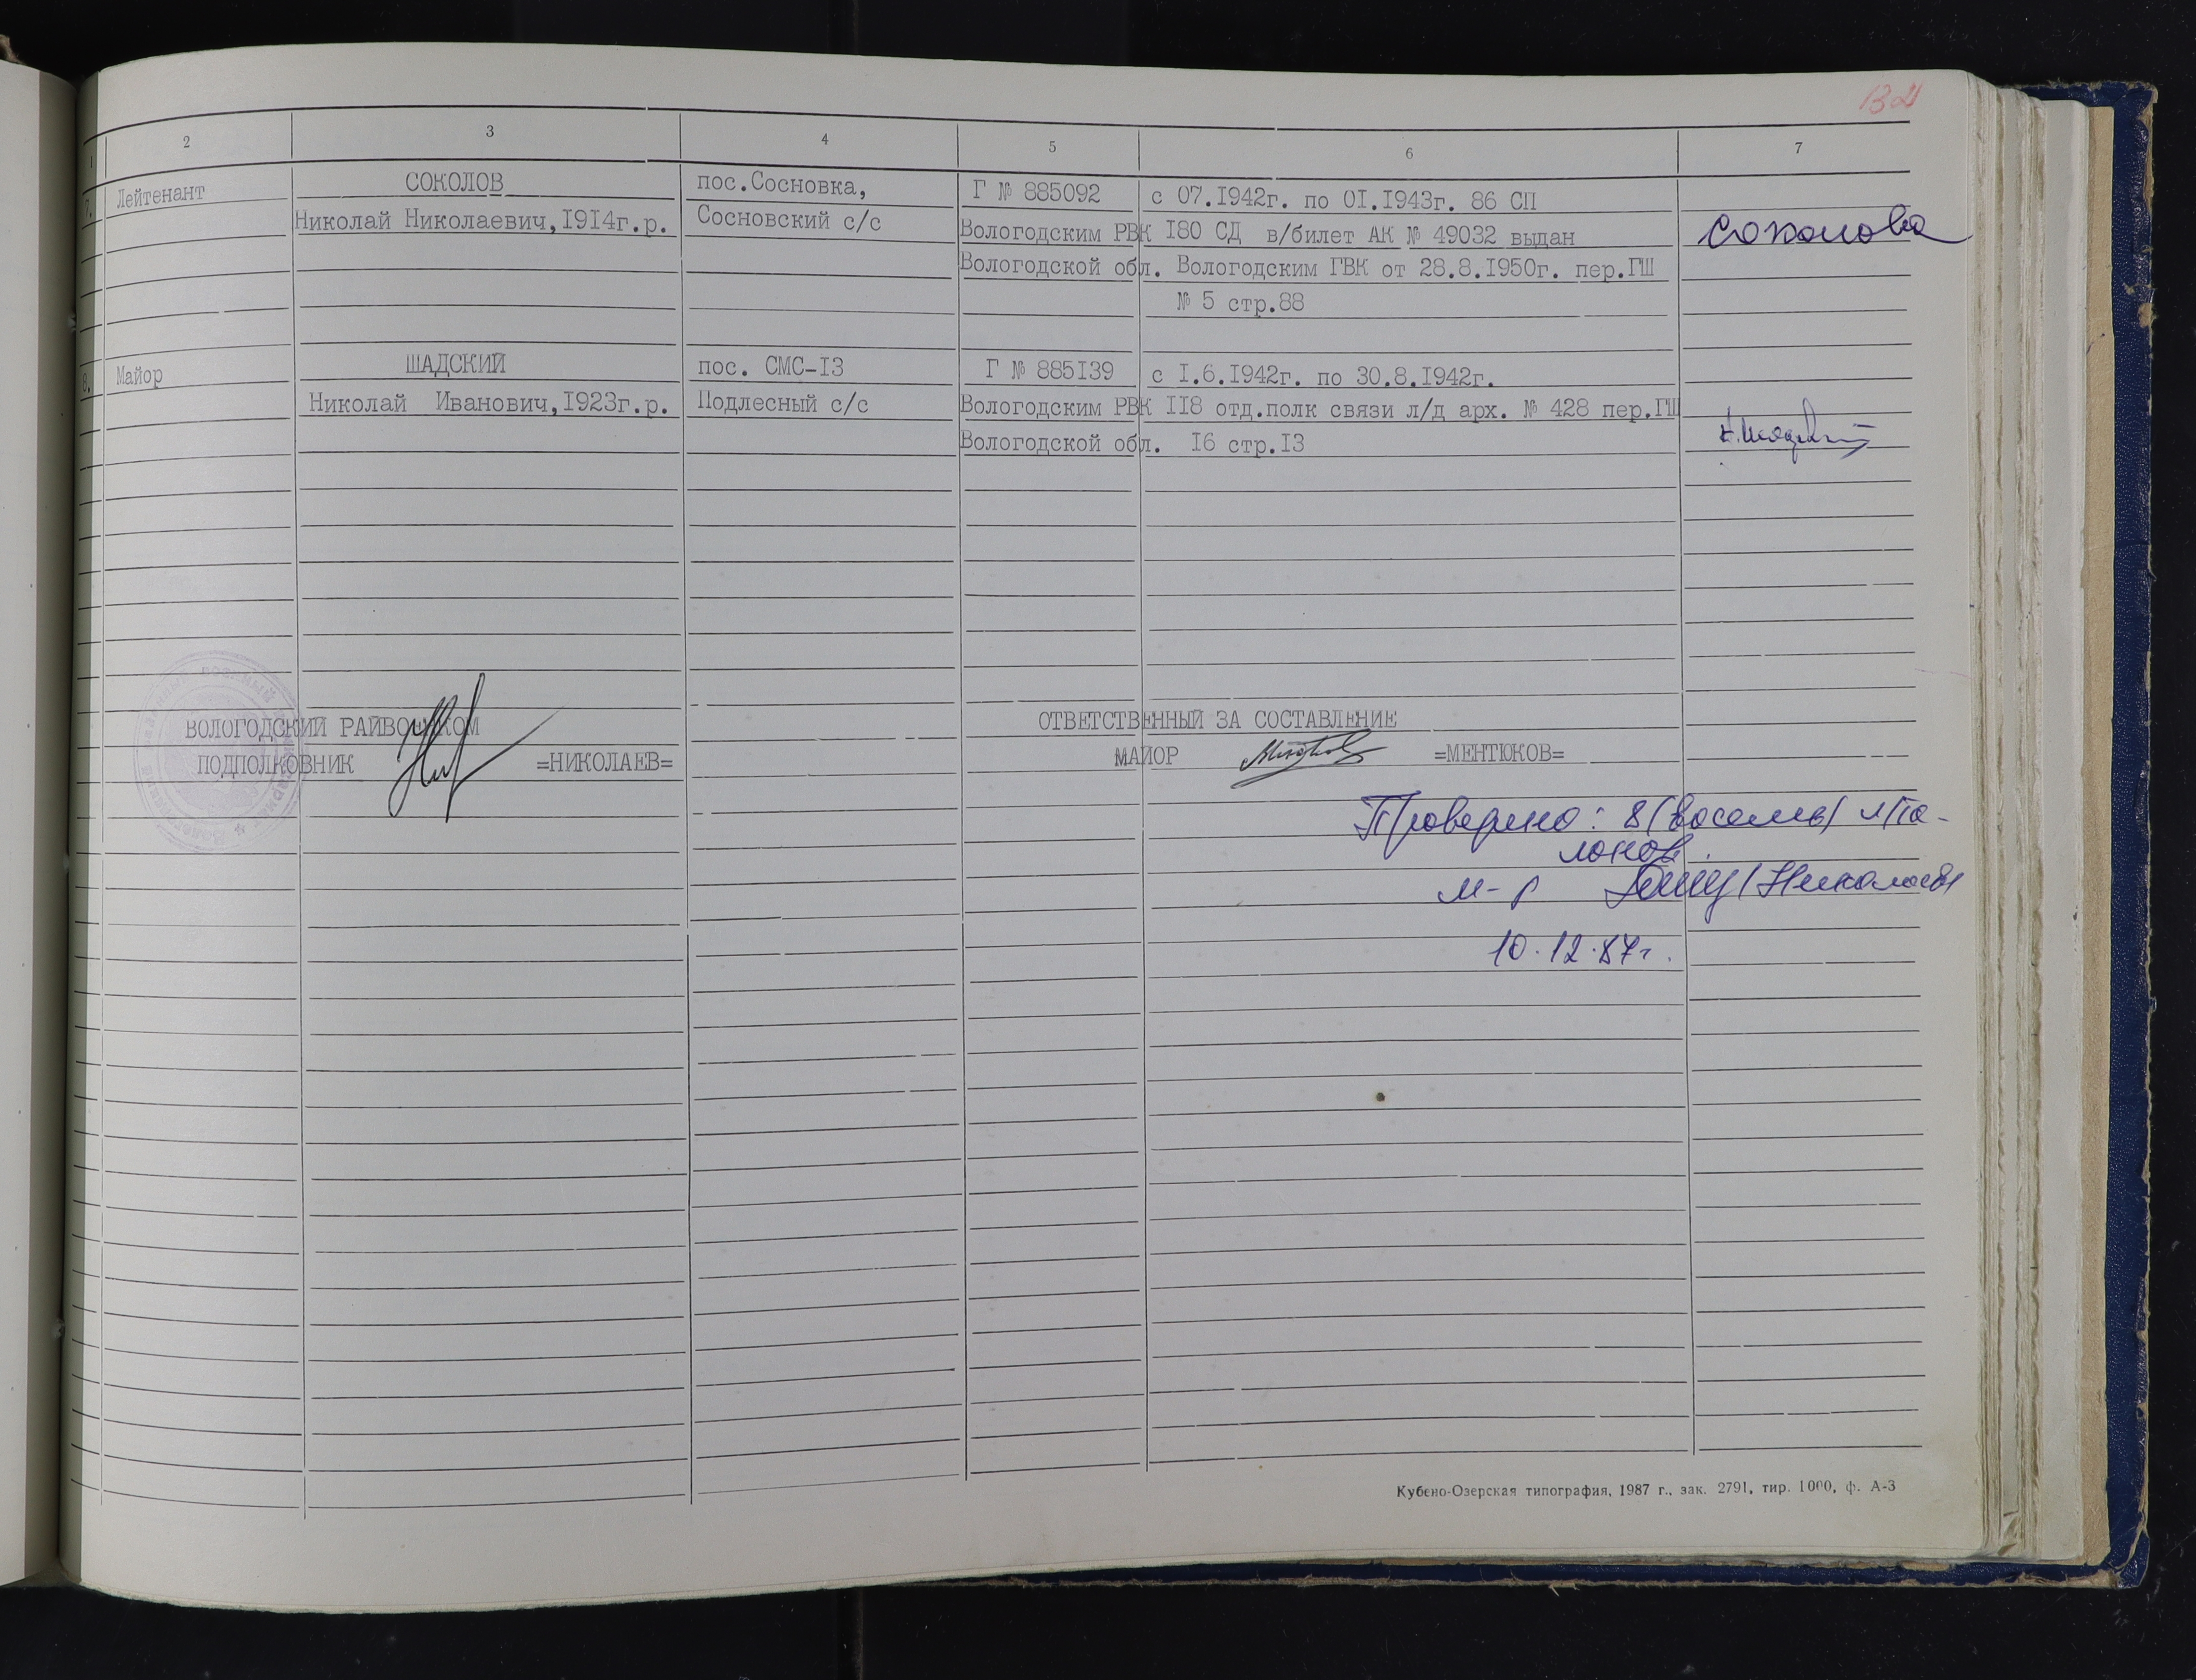 132
1 2 3 4 5 6 7
7. Лейтенант СОКОЛОВ пос.Сосновка, Г № 885092 с 07.1942г. по 01.1943г. 86 СП
Николай Николаевич,1914г.р. Сосновский с/с Вологодским РВК 180 СД в/билет АК № 49032 выдан Соколова
Вологодской обл. Вологодским ГВК от 28.8.1950г. пер.ГШ
№ 5 стр.88
8. Майор ШАДСКИЙ пос. СМС-13 Г № 885139 с 1.6.1942г. по 30.8.1942г.
Николай Иванович,1923г.р. Подлесный с/с Вологодским РВК 118 отд.полк связи л/д арх. № 428 пер.ГШ
Вологодской обл. 16 стр.13
ВОЛОГОДСКИЙ РАЙВОЕНКОМ ОТВЕТСТВЕННЫЙ ЗА СОСТАВЛЕНИЕ
ПОДПОЛКОВНИК =НИКОЛАЕВ= МАЙОР =МЕНТЮКОВ=
Проверено: 8 (восемь) та-
лонов.
м-р
10.12.87г.
Кубено-Озерская типография, 1987 г., зак. 2791, тир. 1000, ф. А-3